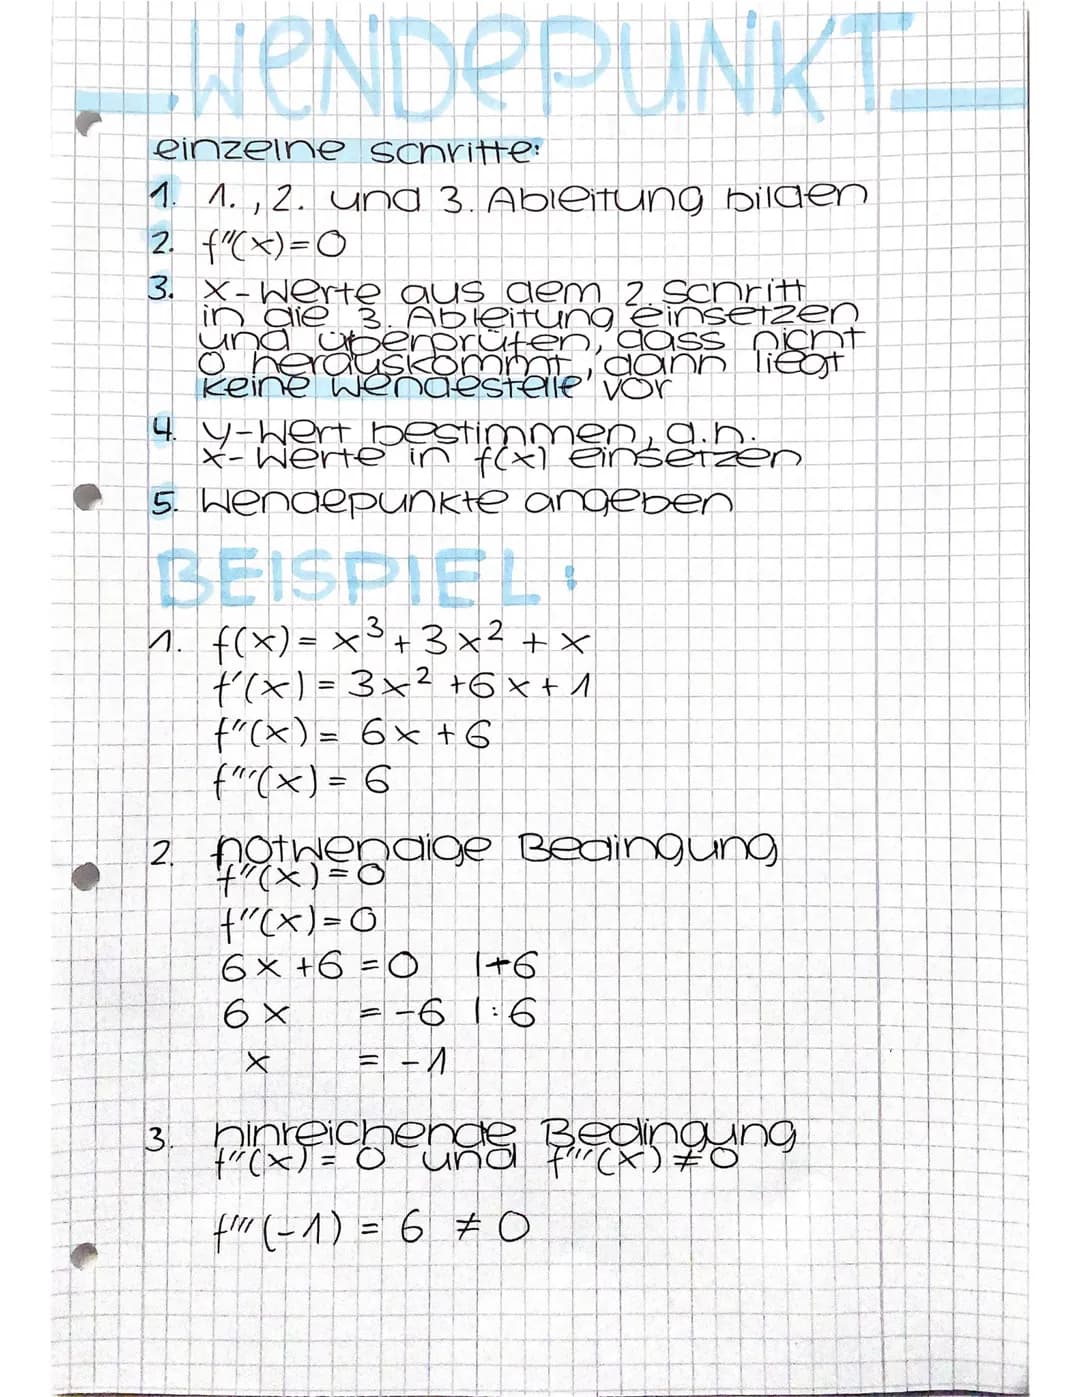 WENDEPUNKT
einzelne schritte:
1. 1., 2. und 3. Ableitung bilden
2. f''(x)=0
3. x-Werte aus dem 2. Schritt
in die 3. Ableitung einsetzen
und überprüfen, dass nicht
0 herauskommt, dann liegt
keine Wendestelle vor
4. y-Wert bestimmen, d.h.
x-Werte in f(x) einsetzen
5. Wendepunkte angeben
BEISPIEL:
1. f(x) = x³ + 3x² + x
f'(x) = 3x² +6x + 1
f''(x) = 6x +6
f'''(x) = 6
2. notwendige Bedingung
f''(x)=0
f''(x)=0
6x +6 =0 |+6
6x = -6 |:6
x = -1
3. hinreichende Bedingung
f''(x) = 0 und f'''(x) ≠ 0
f'''(-1) = 6 ≠ 0